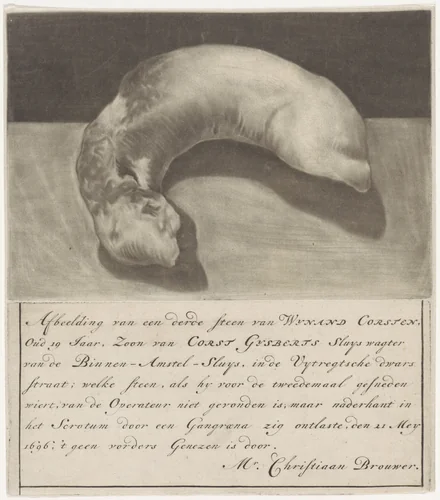 Afbeelding van een derde steen van WYNAND CORSTEN.
Oud 19 Jaar. Zoon van CORST GYSBERTS Sluys wagter
van de Binnen-Amstel-Sluys, inde Uytregtsche dwars
straat; welke steen, als hy voor de tweedemaal gesneden
wiert, van de Operateur niet gevonden is; maar naderhant in
het Scrotum door een Gangræna zig ontlaste, den 21 Mey
1696; 't geen vorders Genezen is door.
Mr. Christiaan Brouwer.